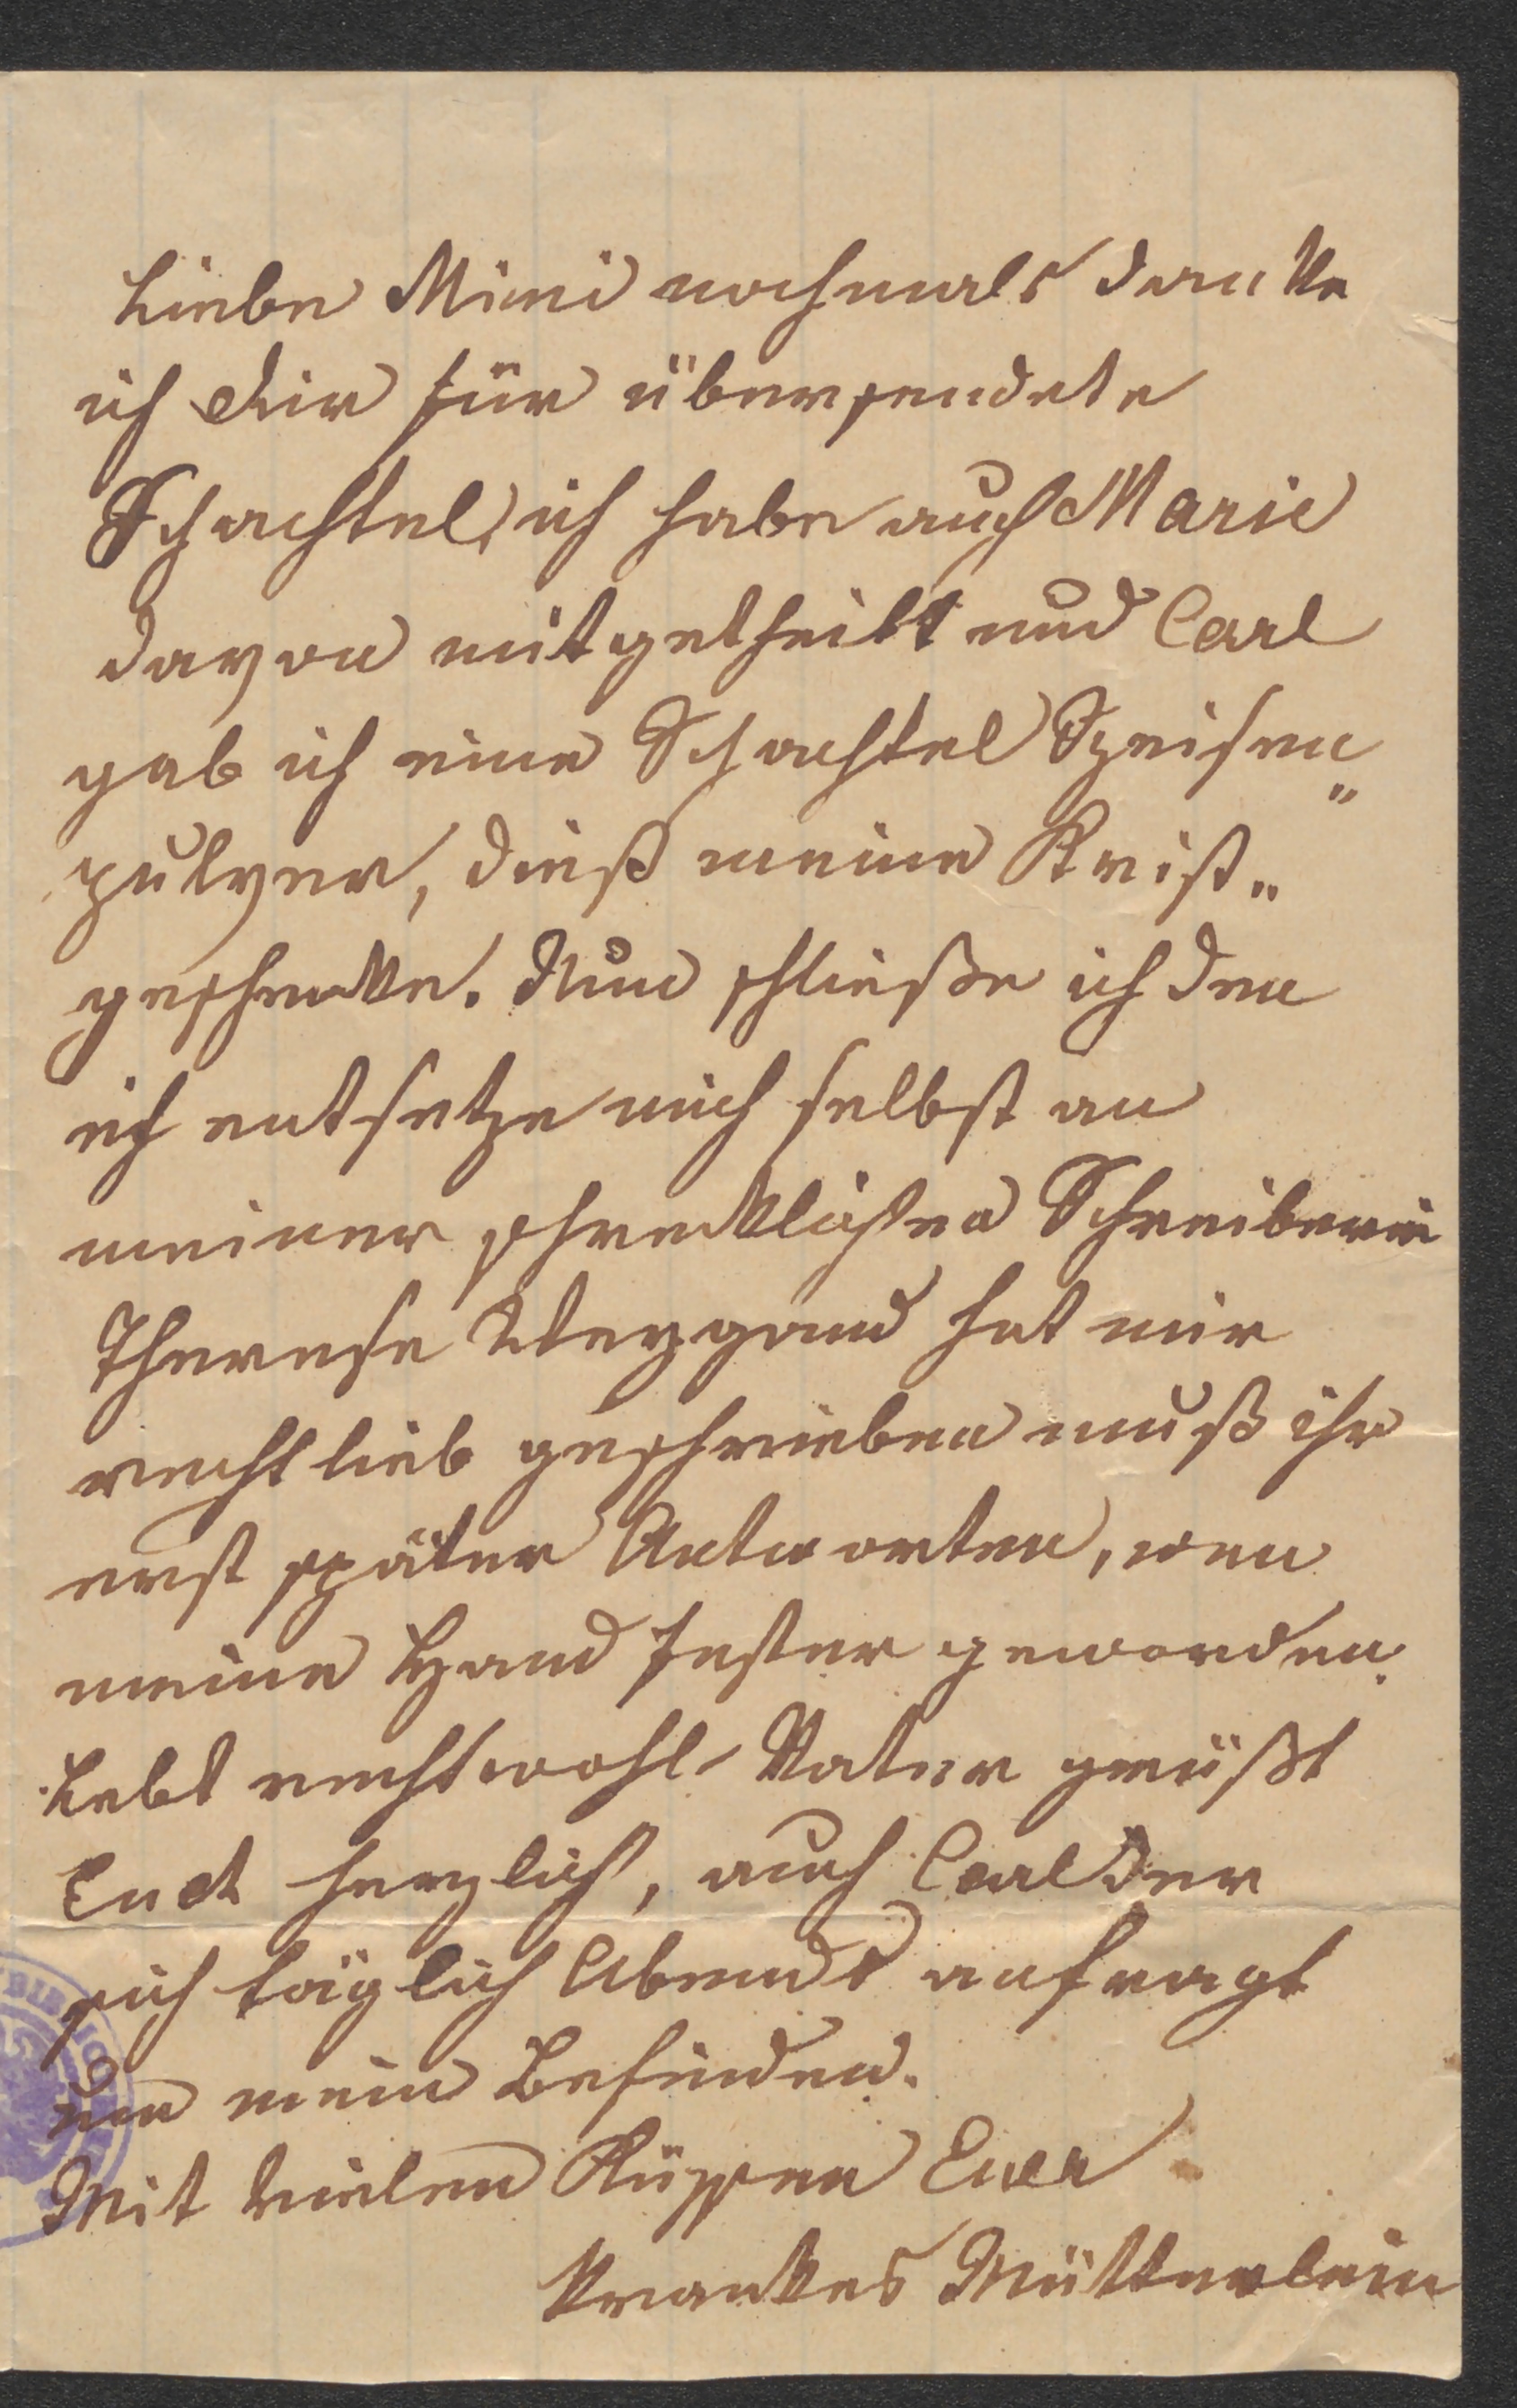 Liebe Mimi nochmals danke
ich Dir für übersendete
Schachtel, ich habe auch Marie
davon mitgetheilt und Carl
gab ich eine Schachtel Speisen„
pulver, dieß meine Krist„
geschenke. Nun schließe ich den
ich entsetze mich selbst an
meiner schrecklichen Schreiberei
Therese Weygand hat mir
recht lieb geschrieben muß ihr
erst später Antworten, wen
meine Hand fester geworden.
Lebt recht wohl Vater grüßt
Euch herzlich, auch Carl der
sich täglich Abends anfragt
um mein Befinden.
Mit vielen Küssen Euer
krankes Mütterlein